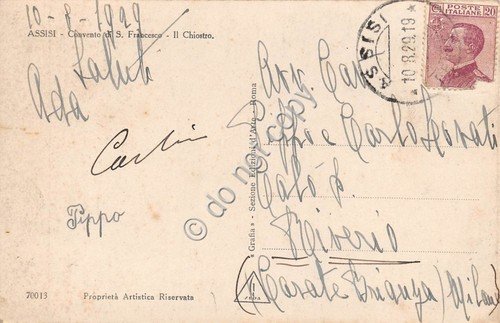 10-8-1929
ASSISI - Convento di S. Francesco - Il Chiostro.
Saluti
Ada
Pippo
70013 Proprietà Artistica Riservata
« Grafia » - Sezione Edizioni d'Arte - Roma
ASSISI
10.8.29.19
POSTE ITALIANE
20
Avv. Cav.
Carlo
Calò
(Carate Brianza) Milano
© do not copy